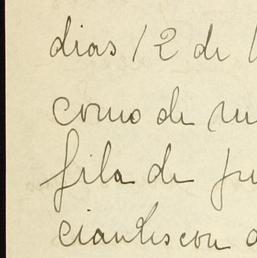 dias 12 de
como de
fila de
ciantes con